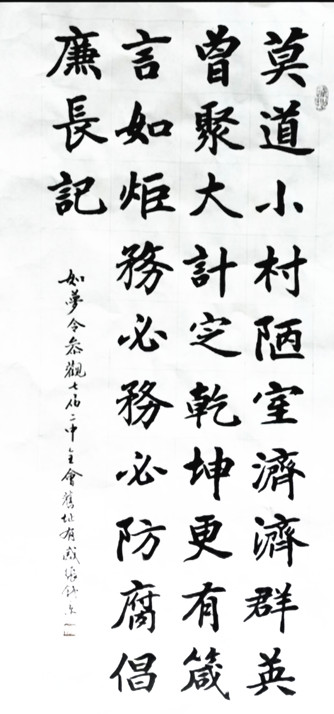 莫道小村陋室濟濟群英
曾聚大計定乾坤更有箴
言如炬務必務必防腐倡
廉長記
如夢令參觀七届二中全會舊址有感